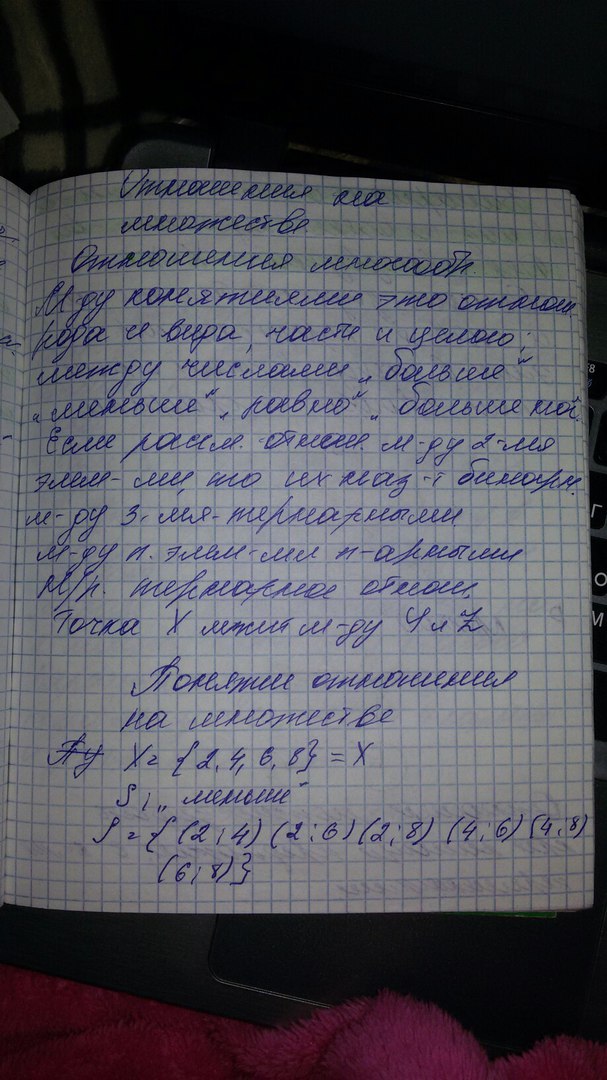 Отношения на
множестве
Отношения многообр.
М-ду понятиями это отнош.
рода и вида, части и целого;
между числами „больше"
„меньше" „равно" „больше на"
Если рассм. отнош. м-ду 2-мя
элем-ми, то их наз-т бинарн.
м-ду 3-мя-тернарными
м-ду n. элем-ми n-арными
Н/р. тернарное отнош.
Точка X лжит м-ду Y и Z
Понятие отношения
на множестве
X = {2, 4, 6, 8} = X
ρ; „меньше"
ρ = { (2;4) (2;6) (2;8) (4;6) (4;8)
(6;8)}